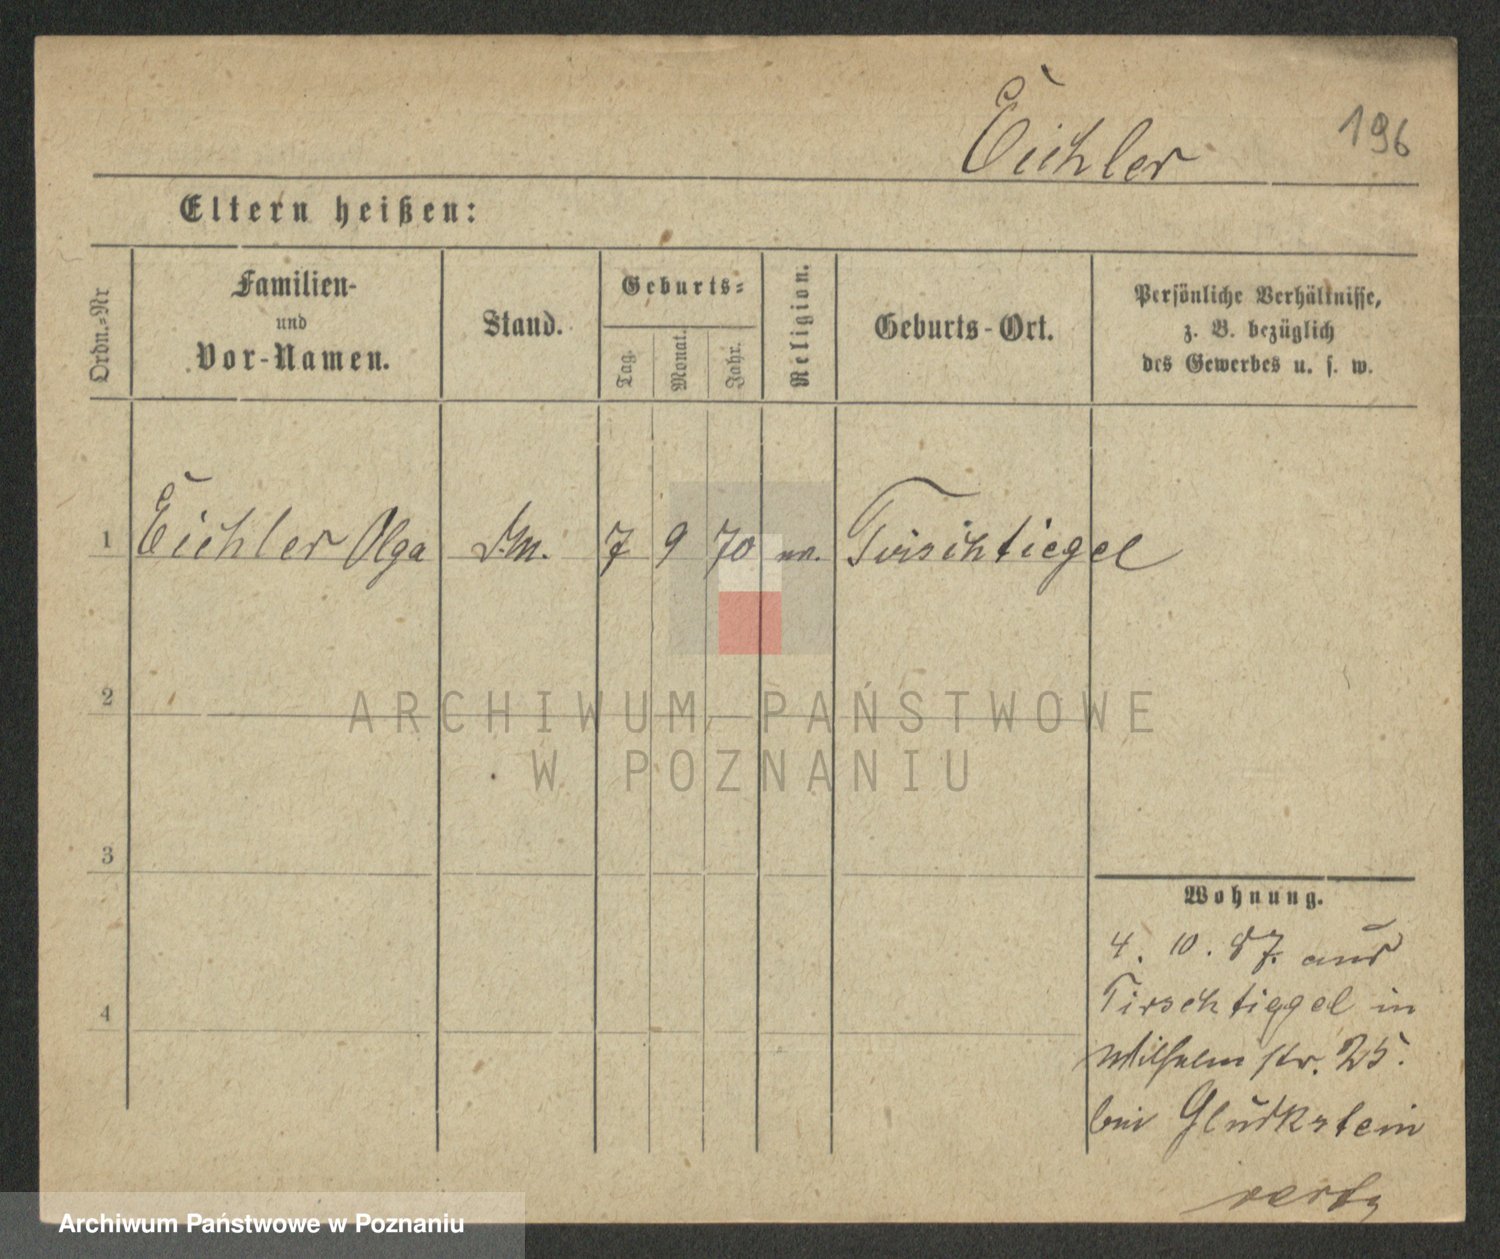 Eichler
196
Eltern heißen:
Ordn.-Nr
Familien-
und
Vor-Namen.
Stand.
Geburts-
Tag.
Monat.
Jahr.
Religion.
Geburts-Ort.
Persönliche Verhältnisse,
z. B. bezüglich
des Gewerbes u. s. w.
1 Eichler Olga D.M. 7 9 70 ev. Tirschtiegel
2
ARCHIWUM PAŃSTWOWE
W POZNANIU
3
Wohnung.
4. 10. 87. aus
Tirschtiegel in
Wilhelm str. 25.
bei Glückstein
4
Archiwum Państwowe w Poznaniu